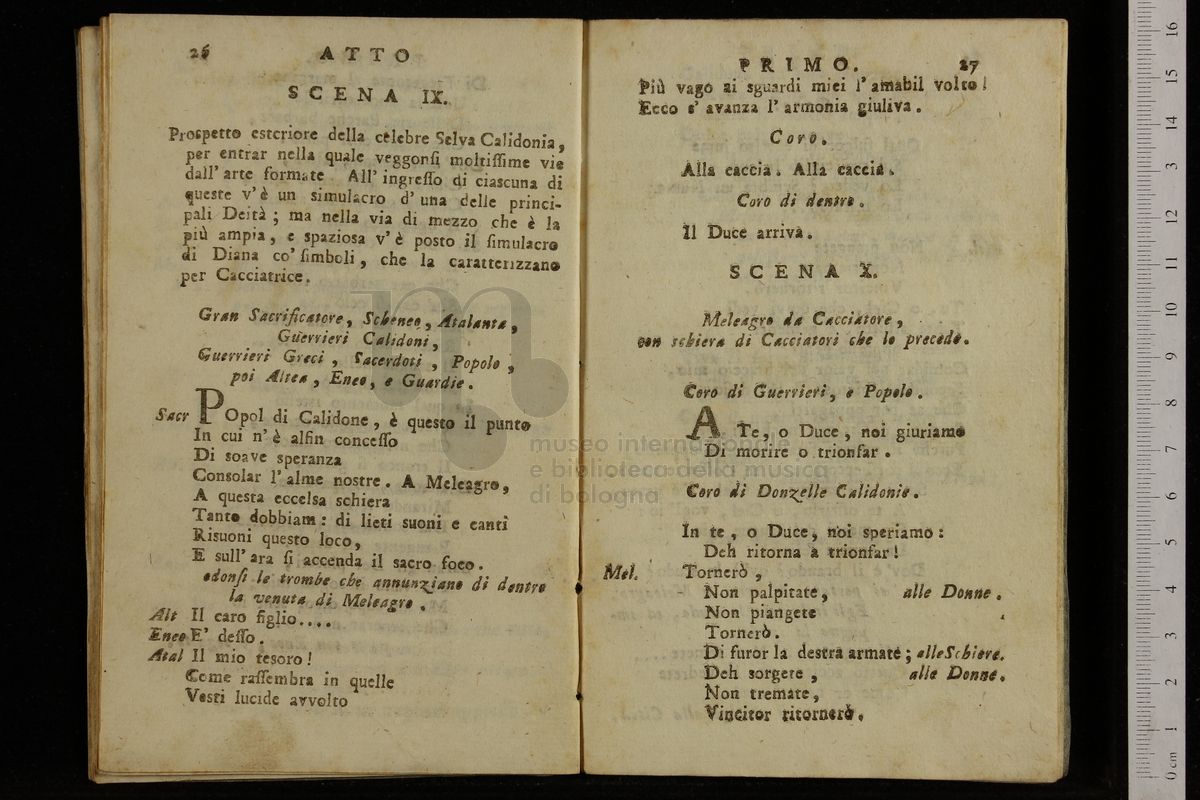 26 ATTO
SCENA IX.
Prospetto esteriore della celebre Selva Calidonia,
per entrar nella quale veggonsi moltissime vie
dall' arte formate All' ingresso di ciascuna di
queste v' è un simulacro d' una delle princi-
pali Deità ; ma nella via di mezzo che è la
più ampia, e spaziosa v' è posto il simulacro
di Diana co' simboli, che la caratterizzano
per Cacciatrice.
Gran Sacrificatore, Scheneo, Atalanta,
Guerrieri Calidoni,
Guerrieri Greci, Sacerdoti, Popolo,
poi Altea, Eneo, e Guardie.
Sacr POpol di Calidone, è questo il punto
In cui n' è alfin concesso
Di soave speranza
Consolar l' alme nostre. A Meleagro,
A questa eccelsa schiera
Tanto dobbiam: di lieti suoni e canti
Risuoni questo loco,
E sull' ara si accenda il sacro foco.
odonsi le trombe che annunziano di dentro
la venuta di Meleagro.
Alt Il caro figlio....
Eneo E' desso.
Atal Il mio tesoro!
Come rassembra in quelle
Vesti lucide avvolto
PRIMO. 27
Più vago ai sguardi miei l' amabil volto!
Ecco s' avanza l' armonia giuliva.
Coro.
Alla caccia. Alla caccia.
Coro di dentro.
Il Duce arriva.
SCENA X.
Meleagro da Cacciatore,
con schiera di Cacciatori che lo precede.
Coro di Guerrieri, e Popolo.
A Te, o Duce, noi giuriamo
Di morire o trionfar.
Coro di Donzelle Calidonie.
In te, o Duce, noi speriamo:
Deh ritorna a trionfar!
Mel. Tornerò,
Non palpitate, alle Donne.
Non piangete
Tornerò.
Di furor la destra armate; alle Schiere.
Deh sorgete, alle Donne.
Non tremate,
Vincitor ritornerò.
museo internazionale
e biblioteca della musica
di bologna
0 cm 1 2 3 4 5 6 7 8 9 10 11 12 13 14 15 16